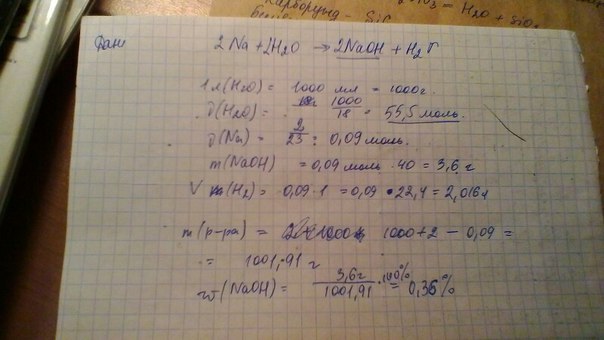 Карборунд - SiC
Дано
2Na + 2H2O → 2NaOH + H2↑
1л(H2O) = 1000 мл = 1000г.
ϑ(H2O) = 1000/18 = 55,5 моль.
ϑ(Na) = 2/23 = 0,09 моль.
m(NaOH) = 0,09 моль · 40 = 3,6 г
V (H2) = 0,09 · 1 = 0,09 · 22,4 = 2,016 л
m(р-ра) = 1000 + 2 - 0,09 =
= 1001,91 г
w(NaOH) = 3,6г/1001,91 · 100% = 0,36%